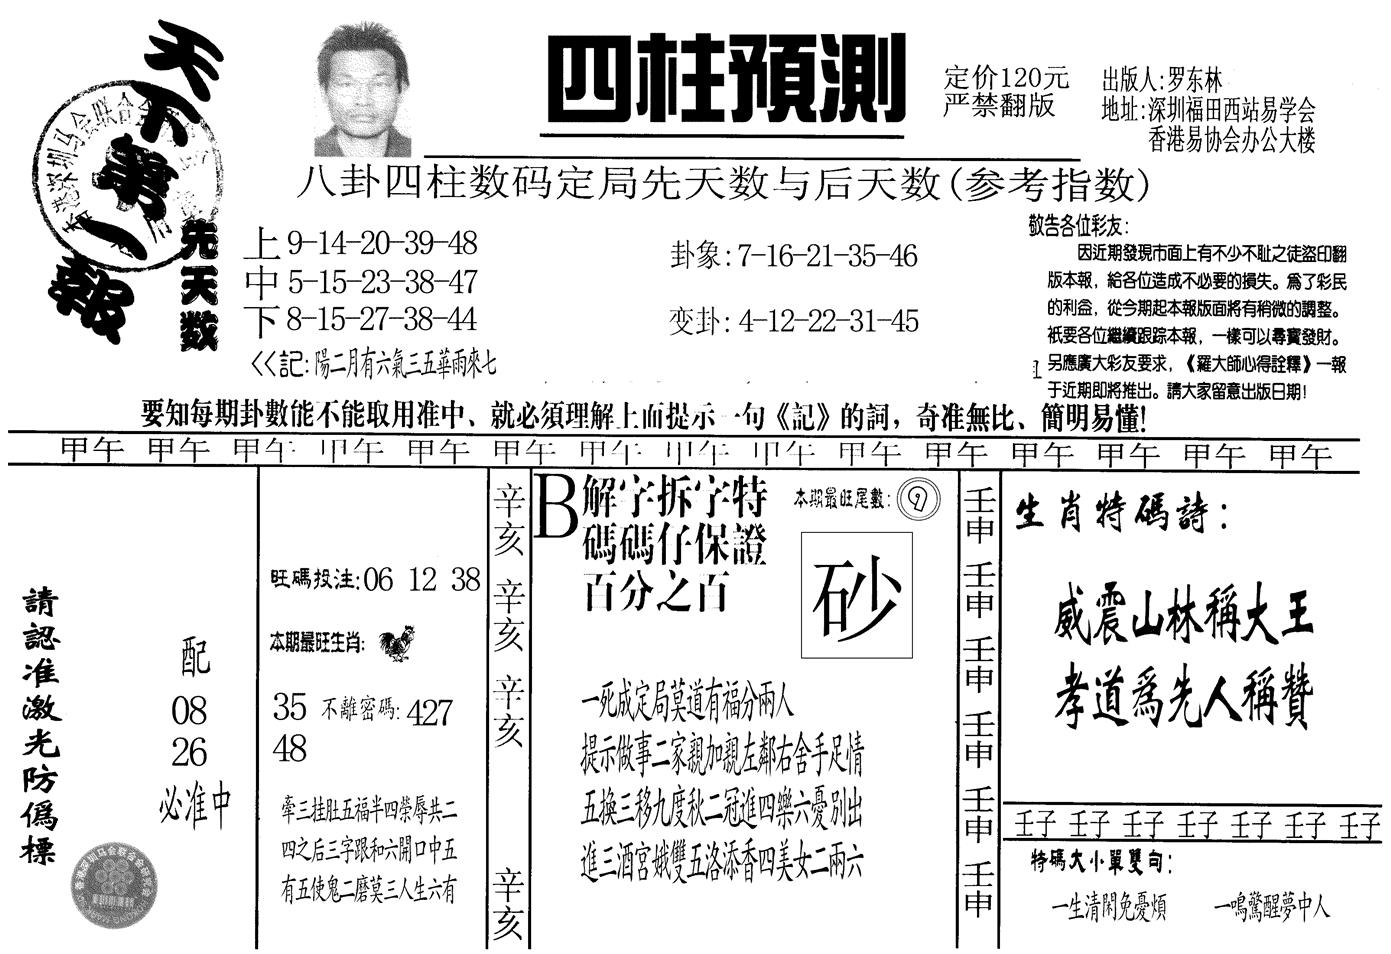 天下第一報
四柱預測
定价120元
严禁翻版
出版人:罗东林
地址:深圳福田西站易学会
香港易协会办公大楼
八卦四柱数码定局先天数与后天数(参考指数)
先天数
上 9-14-20-39-48
中 5-15-23-38-47
下 8-15-27-38-44
<<記:陽二月有六氣三五華雨來七
卦象:7-16-21-35-46
变卦:4-12-22-31-45
敬告各位彩友:
因近期發現市面上有不少不耻之徒盜印翻
版本報，給各位造成不必要的損失。爲了彩民
的利益，從今期起本報版面將有稍微的調整。
衹要各位繼續跟踪本報，一樣可以尋寶發財。
另應廣大彩友要求，《羅大師心得詮釋》一報
于近期即將推出。請大家留意出版日期!
要知每期卦數能不能取用准中、就必須理解上面提示一句《記》的詞，奇准無比、簡明易懂!
甲午 甲午 甲午 甲午 甲午 甲午 甲午 甲午 甲午 甲午 甲午 甲午 甲午 甲午 甲午
請認准激光防僞標
配
08
26
必准中
旺碼投注:06 12 38
本期最旺生肖:
35 不離密碼:427
48
牽三挂肚五福半四榮辱共二
四之后三字跟和六開口中五
有五使鬼二磨莫三人生六有
辛亥 辛亥 辛亥 辛亥
B
解字拆字特
碼碼仔保證
百分之百
本期最旺尾數:9
砂
一死成定局莫道有福分兩人
提示做事二家親加親左鄰右舍手足情
五換三移九度秋二冠進四樂六憂別出
進三酒宮娥雙五洛添香四美女二兩六
壬申 壬申 壬申 壬申 壬申 壬申
生肖特碼詩:
威震山林稱大王
孝道爲先人稱贊
壬子 壬子 壬子 壬子 壬子 壬子 壬子
特碼大小單雙句:
一生清閑免憂煩 一鳴驚醒夢中人